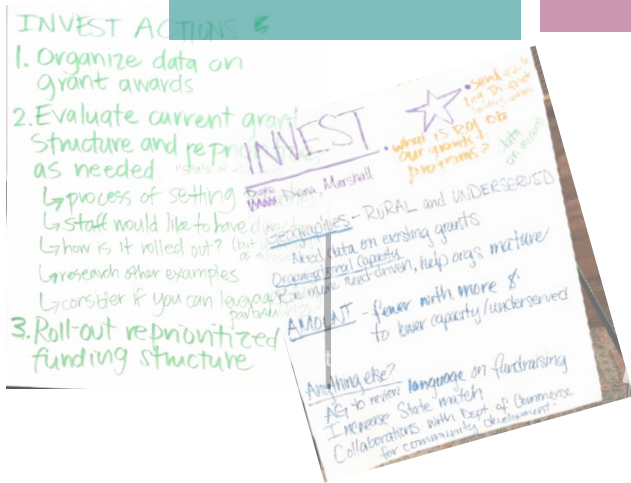 INVEST ACTIONS
1. Organize data on
grant awards
2. Evaluate current grant
structure and repri
as needed
↳ process of setting
↳ staff would like to have
↳ how is it rolled out? (but
↳ research other examples
↳ consider if you can leverage
partner
3. Roll-out reprioritized
funding structure
INVEST
Diana, Marshall
• send
• What is ROI of
our grants
programs?
data
Geographies - RURAL and UNDERSERVED
Need data on existing grants
Organizational Capacity
need-driven, help orgs mature
AMOUNT - fewer with more $
to lower capacity/underserved
Anything else?
AG to review language on fundraising
Increase State match
Collaborations with Dept of Commerce
for community development